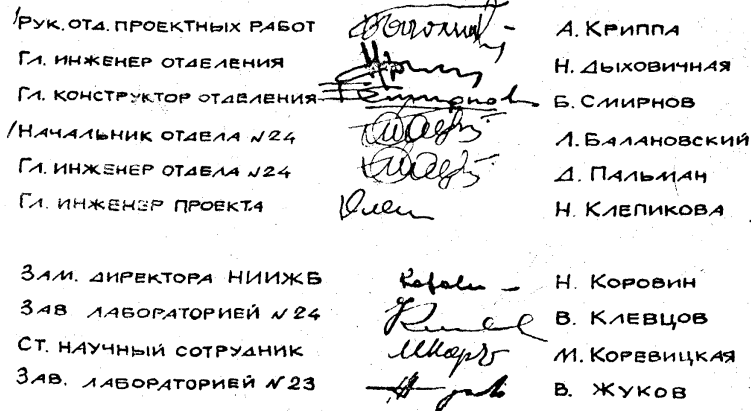 РУК. ОТД. ПРОЕКТНЫХ РАБОТ А. КРИППА
ГЛ. ИНЖЕНЕР ОТДЕЛЕНИЯ Н. ДЫХОВИЧНАЯ
ГЛ. КОНСТРУКТОР ОТДЕЛЕНИЯ Б. СМИРНОВ
НАЧАЛЬНИК ОТДЕЛА №24 Л. БАЛАНОВСКИЙ
ГЛ. ИНЖЕНЕР ОТДЕЛА №24 Д. ПАЛЬМАН
ГЛ. ИНЖЕНЕР ПРОЕКТА Н. КЛЕПИКОВА
ЗАМ. ДИРЕКТОРА НИИЖБ Н. КОРОВИН
ЗАВ ЛАБОРАТОРИЕЙ №24 В. КЛЕВЦОВ
СТ. НАУЧНЫЙ СОТРУДНИК М. КОРЕВИЦКАЯ
ЗАВ. ЛАБОРАТОРИЕЙ №23 В. ЖУКОВ